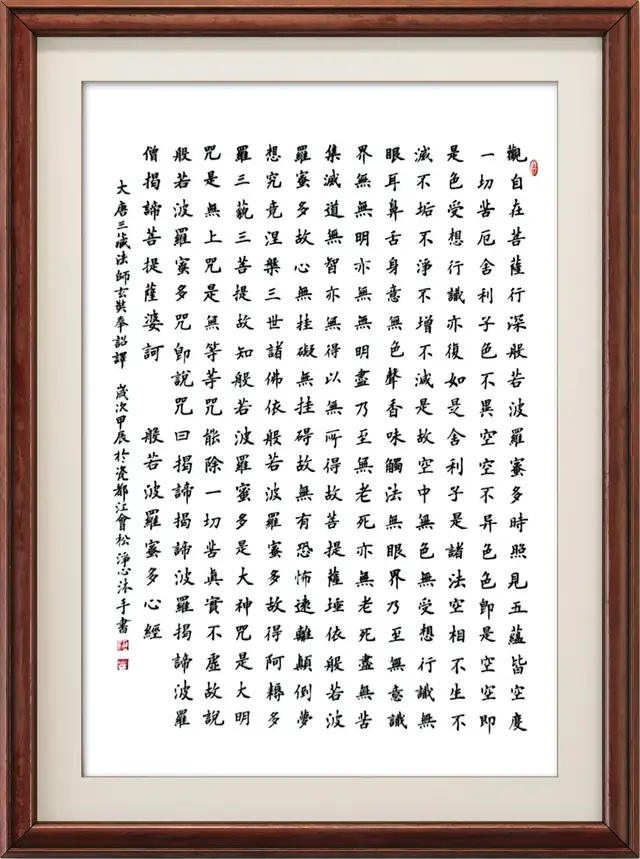 觀自在菩薩行深般若波羅蜜多時照見五蘊皆空度
一切苦厄舍利子色不異空空不异色色即是空空即
是色受想行識亦復如是舍利子是諸法空相不生不
滅不垢不淨不增不減是故空中無色無受想行識無
眼耳鼻舌身意無色聲香味觸法無眼界乃至無意識
界無無明亦無無明盡乃至無老死亦無老死盡無苦
集滅道無智亦無得以無所得故菩提薩埵依般若波
羅蜜多故心無挂礙無挂碍故無有恐怖遠離顛倒夢
想究竟涅槃三世諸佛依般若波羅蜜多故得阿耨多
羅三藐三菩提故知般若波羅蜜多是大神咒是大明
咒是無上咒是無等等咒能除一切苦真實不虛故說
般若波羅蜜多咒即說咒曰揭諦揭諦波羅揭諦波羅
僧揭諦菩提薩婆訶 般若波羅蜜多心經
大唐三藏法師玄奘奉詔譯 歲次甲辰於瓷都江會松淨心沐手書